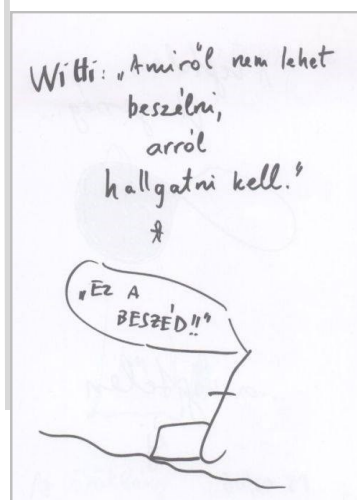 Witti: „Amiről nem lehet
beszélni,
arról
hallgatni kell.“
„EZ A
BESZÉD!!“